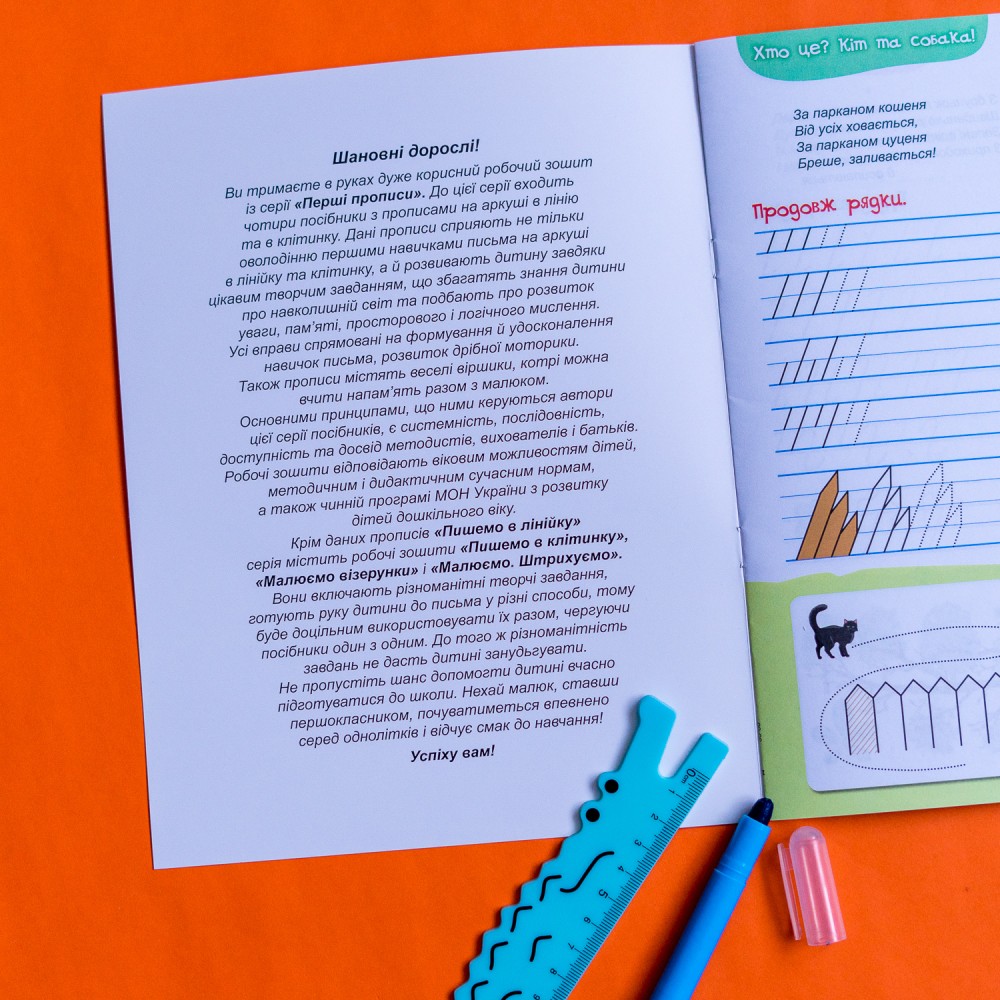 Шановні дорослі!
Ви тримаєте в руках дуже корисний робочий зошит
із серії «Перші прописи». До цієї серії входить
чотири посібники з прописами на аркуші в лінію
та в клітинку. Дані прописи сприяють не тільки
оволодінню першими навичками письма на аркуші
в лінійку та клітинку, а й розвивають дитину завдяки
цікавим творчим завданням, що збагатять знання дитини
про навколишній світ та подбають про розвиток
уваги, пам'яті, просторового і логічного мислення.
Усі вправи спрямовані на формування й удосконалення
навичок письма, розвиток дрібної моторики.
Також прописи містять веселі віршики, котрі можна
вчити напам'ять разом з малюком.
Основними принципами, що ними керуються автори
цієї серії посібників, є системність, послідовність,
доступність та досвід методистів, вихователів і батьків.
Робочі зошити відповідають віковим можливостям дітей,
методичним і дидактичним сучасним нормам,
а також чинній програмі МОН України з розвитку
дітей дошкільного віку.
Крім даних прописів «Пишемо в лінійку»
серія містить робочі зошити «Пишемо в клітинку»,
«Малюємо візерунки» і «Малюємо. Штрихуємо».
Вони включають різноманітні творчі завдання,
готують руку дитини до письма у різні способи, тому
буде доцільним використовувати їх разом, чергуючи
посібники один з одним. До того ж різноманітність
завдань не дасть дитині занудьгувати.
Не пропустіть шанс допомогти дитині вчасно
підготуватися до школи. Нехай малюк, ставши
першокласником, почуватиметься впевнено
серед однолітків і відчує смак до навчання!
Успіху вам!
Хто це? Кіт та собака!
За парканом кошеня
Від усіх ховається,
За парканом цуценя
Бреше, заливається!
Продовж рядки.
0cm 1 2 3 4 5 6 7 8 9